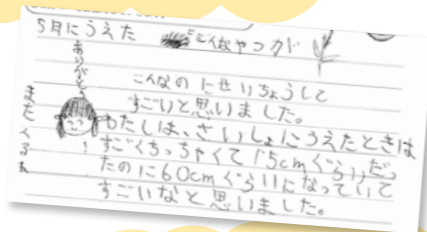 5月にうえた
こんなやつが
こんなのにせいちょうして
すごいと思いました。
わたしは、さいしょにうえたときは
すごくちっちゃくて15cmぐらいだっ
たのに60cmぐらいになっていて
すごいなと思いました。
ありがとう
またくるね